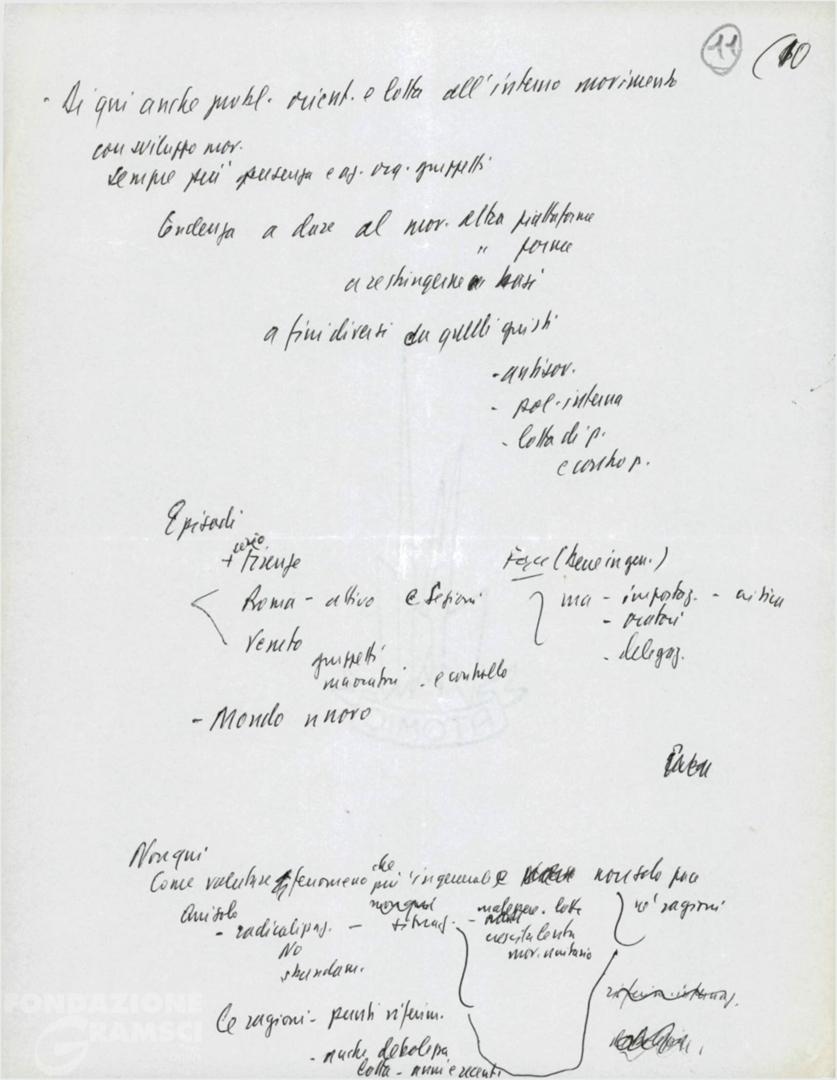 11 (10
- Di qui anche probl. orient. e lotta all'interno movimento
con sviluppo mor.
sempre più presenza e az. org. gruppetti
Tendenza a dare al mov. altra piattaforma
" forma
a restringerne basi
a fini diversi da quelli giusti
- antisov.
- pol. interna
- lotta di p.
e contro p.
Episodi
+ serio Firenze
Roma - attivo e Sezioni
Veneto
gruppetti
- e controllo
- Mondo nuovo
Forze (bene in gen.)
ma - impostaz. - critica
- oratori
- delegaz.
Non qui
Come valutare fenomeno che più in generale non solo pace
Anzitutto
- radicalizzaz. - - lotte
né ragioni
No
crescita lenta
mov. unitario
sbandam.
Le ragioni - punti riferim.
- anche debolezza
lotta - anni recenti
FONDAZIONE
GRAMSCI